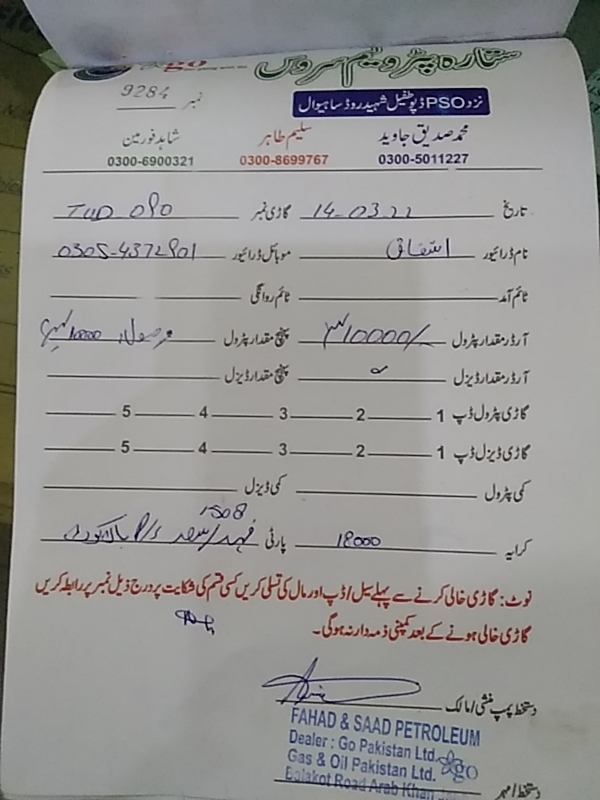 ستارہ پٹرولیم سروس
go
نزد PSO ڈپو طفیل شہید روڈ ساہیوال
نمبر 9284
محمد صدیق جاوید سلیم طاہر شاہد فورمین
0300-5011227 0300-8699767 0300-6900321
تاریخ 14-03-22 گاڑی نمبر
نام ڈرائیور موبائل ڈرائیور 0305-4372901
ٹائم آمد ٹائم روانگی
آرڈر مقدار پٹرول 10000/- پہنچ مقدار پٹرول 10000
آرڈر مقدار ڈیزل پہنچ مقدار ڈیزل
گاڑی پٹرول ڈپ 1 2 3 4 5
گاڑی ڈیزل ڈپ 1 2 3 4 5
کمی پٹرول کمی ڈیزل
1508
کرایہ 18000 پارٹی فہد/سعد P/S بالاکوٹ
نوٹ: گاڑی خالی کرنے سے پہلے سیل / ڈپ اور مال کی تسلی کریں کسی قسم کی شکایت پر درج ذیل نمبر پر رابطہ کریں
گاڑی خالی ہونے کے بعد کمپنی ذمہ دار نہ ہوگی۔
دستخط پمپ منشی / مالک
FAHAD & SAAD PETROLEUM
Dealer : Go Pakistan Ltd.
Gas & Oil Pakistan Ltd. go
Balakot Road Arab Khan
دستخط / مہر